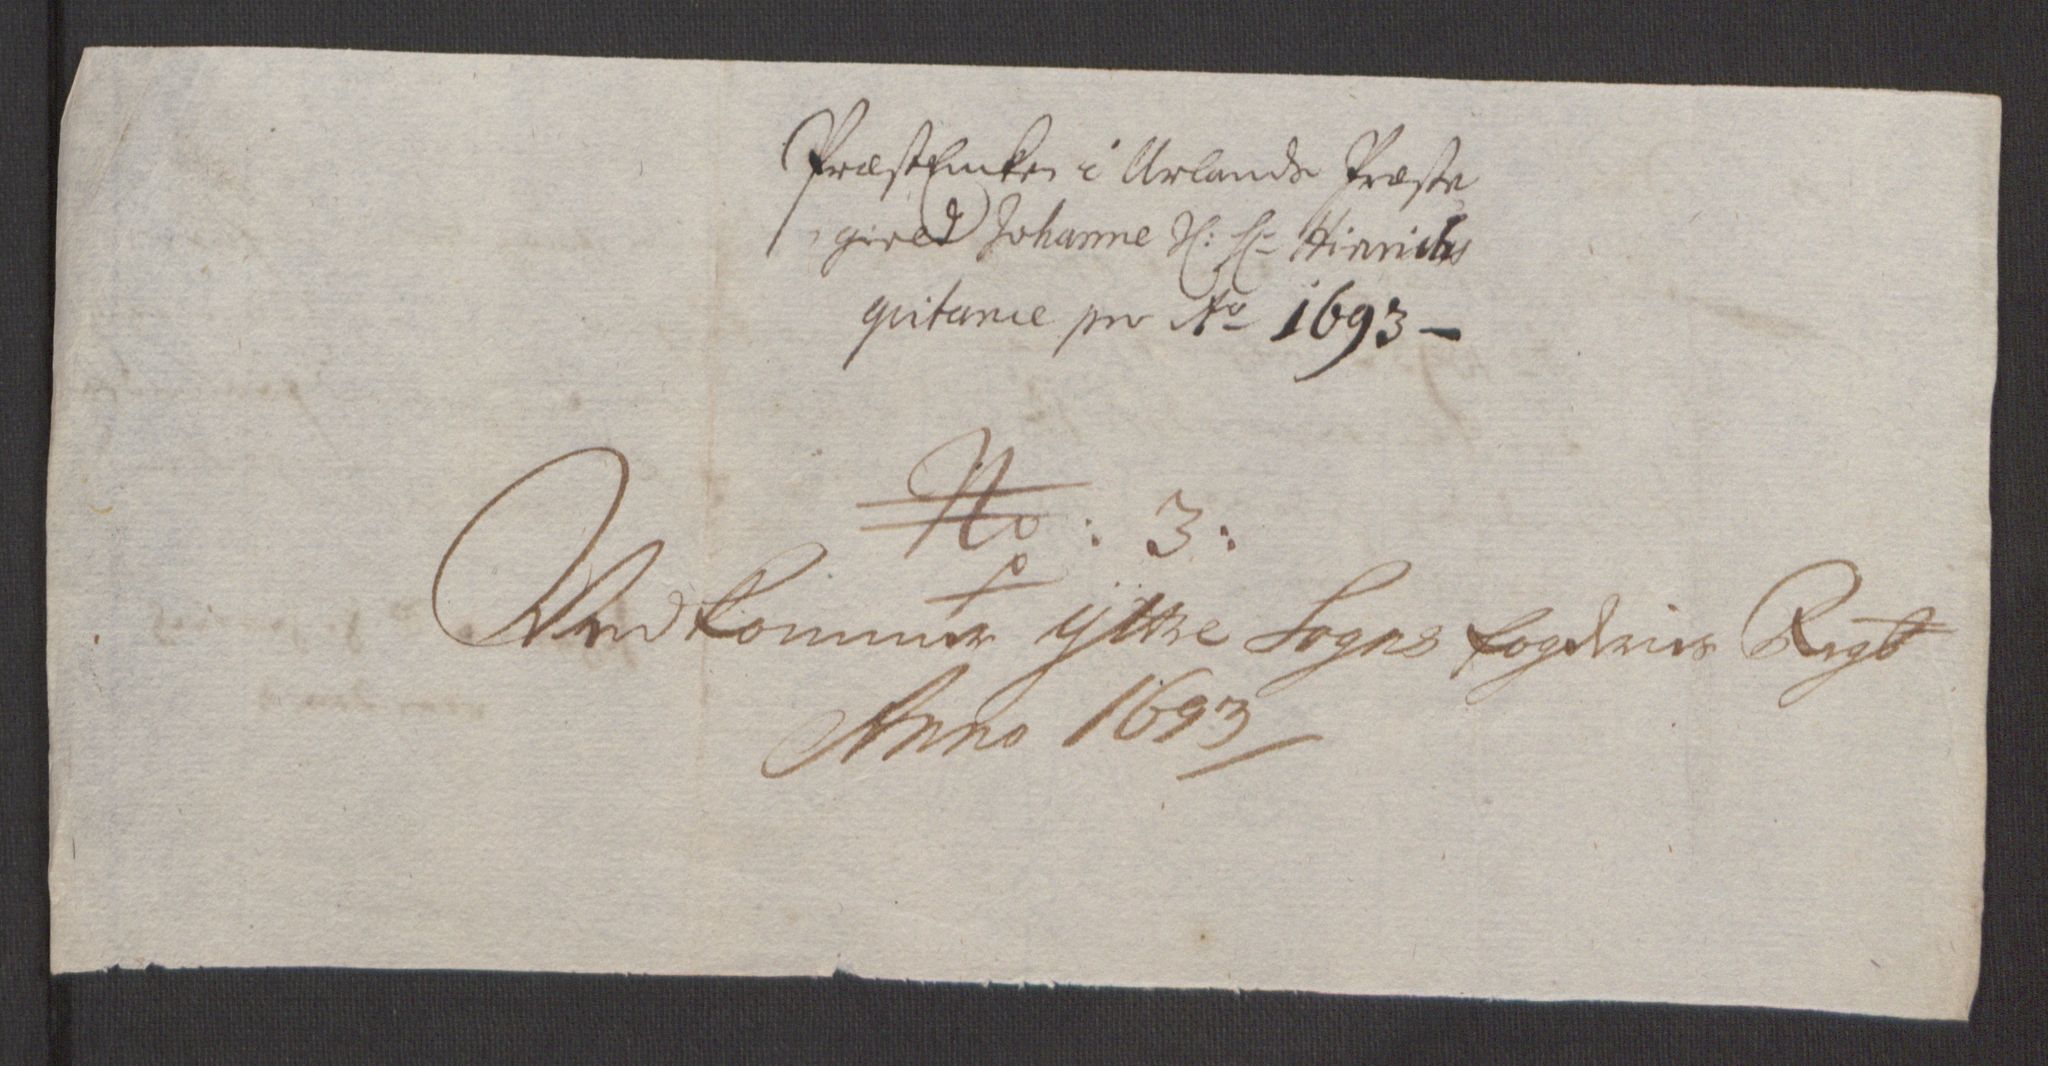 PræstEncker i Urlands Præste
gield Johanne S: Hr Hinrichs
qvitance pro Ao 1693 –
No: 3:
Ved kommer ÿttre Sogns fogderies Regb
Anno 1693